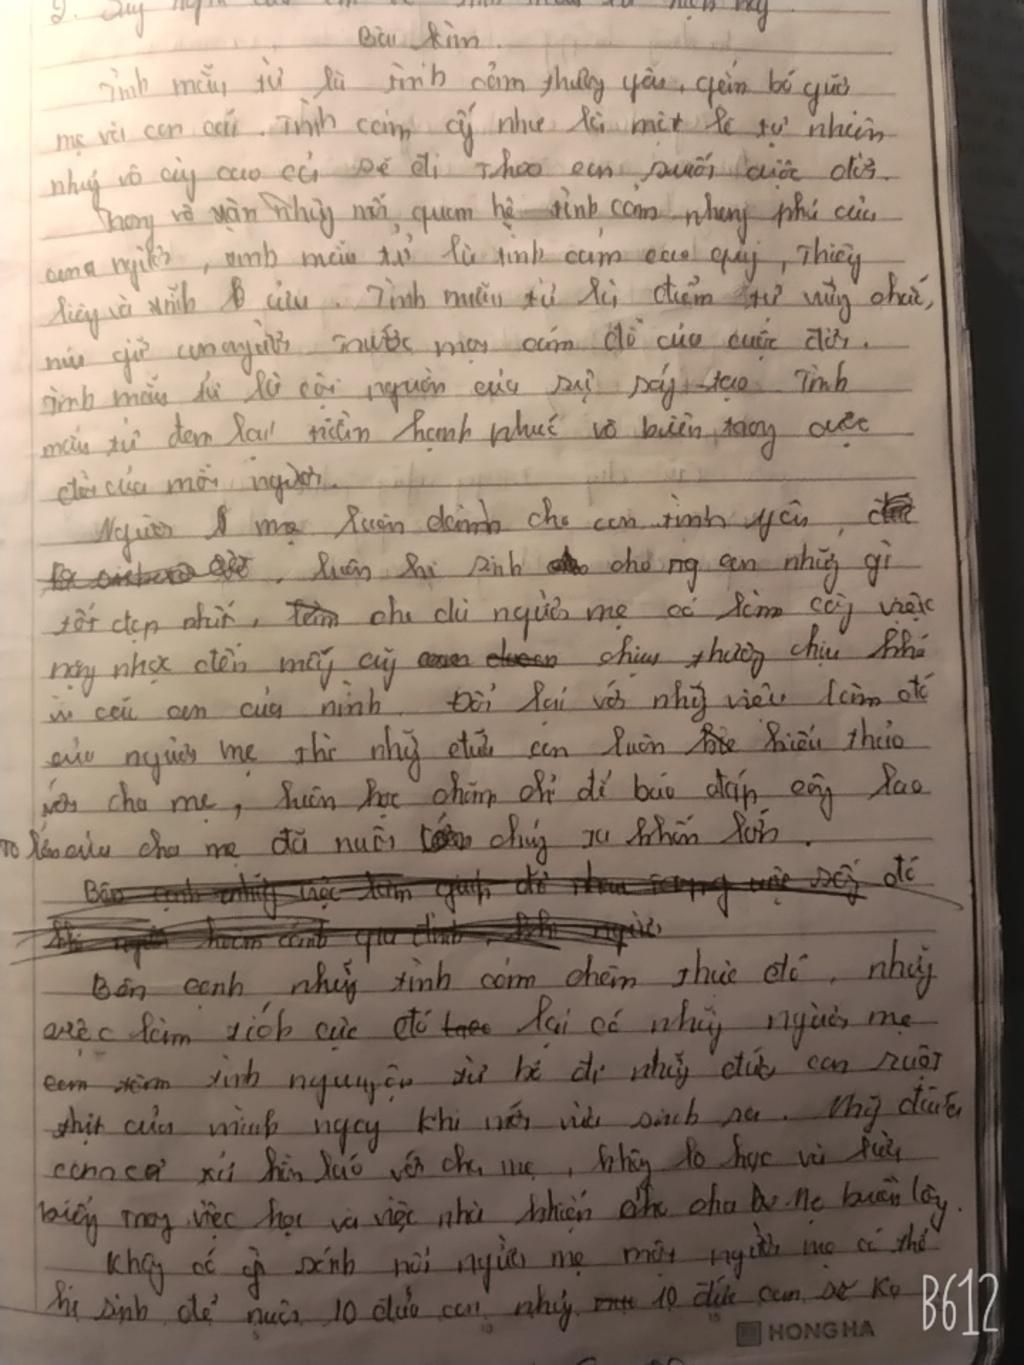 2. Suy nghĩ của em về tình mẫu tử hiện nay.
Bài làm.
Tình mẫu tử là tình cảm thương yêu, gắn bó giữa
mẹ với con cái. Tình cảm ấy như là một lẽ tự nhiên
nhưng vô cùng cao cả sẽ đi theo con suốt cuộc đời.
Trong vô vàn những mối quan hệ tình cảm phong phú của
con người, tình mẫu tử là tình cảm cao quý, thiêng
liêng và bất cứu. Tình mẫu tử là điểm tự vững chắc,
níu giữ con người trước mọi cám dỗ của cuộc đời.
Tình mẫu tử là cội nguồn của sự sáng tạo. Tình
mẫu tử đem lại niềm hạnh phúc vô biên trong cuộc
đời của mỗi người.
Người mẹ luôn dành cho con tình yêu,
luôn hi sinh cho con những gì
tốt đẹp nhất, cho dù người mẹ có làm công việc
nặng nhọc đến mấy cũng chịu thương chịu khó
vì cái con của mình. Đổi lại với những việc làm đó
của người mẹ thì những đứa con luôn hiếu thảo
với cha mẹ, luôn học chăm chỉ để báo đáp công lao
to lớn của cha mẹ đã nuôi chúng ta khôn lớn.
Bên cạnh những việc làm đó
Bên cạnh những tình cảm chân thực đó, những
việc làm tích cực đó lại có những người mẹ
tình nguyện từ bỏ đi những đứa con ruột
thịt của mình ngay khi mới vừa sinh ra. Những đứa
con cả hỗn láo với cha mẹ, không lo học và lười
biếng trong việc học và việc nhà khiến cho cha mẹ buồn lòng.
Không có gì sánh nổi người mẹ một người mẹ có thể
hi sinh để nuôi 10 đứa con, nhưng 10 đứa con sẽ ko
HONG HA
B612